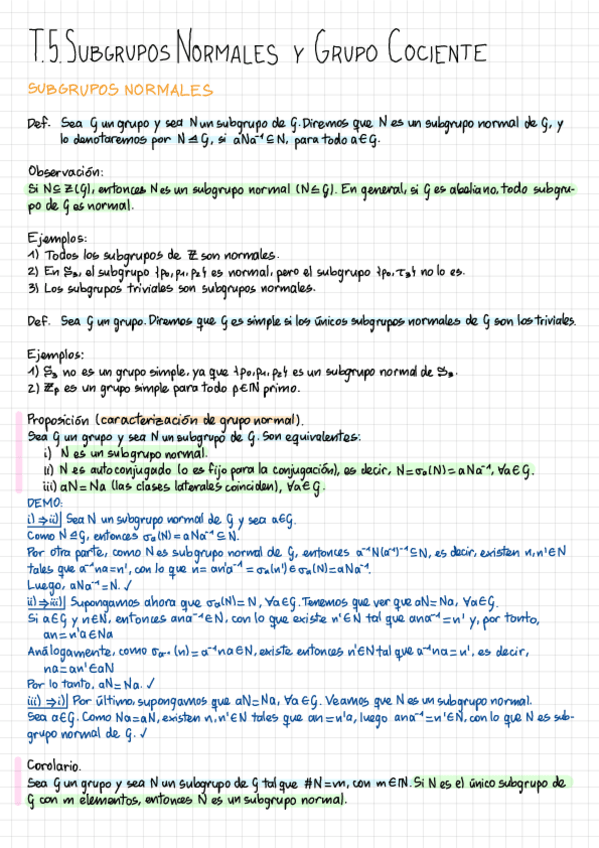 T.5. SUBGRUPOS NORMALES Y GRUPO COCIENTE
SUBGRUPOS NORMALES
Def. Sea G un grupo y sea N un subgrupo de G. Diremos que N es un subgrupo normal de G, y
lo denotaremos por N⊴G, si aNa⁻¹⊆N, para todo a∈G.
Observación:
Si N⊆Z(G), entonces N es un subgrupo normal (N⊴G). En general, si G es abeliano, todo subgru-
po de G es normal.
Ejemplos:
1) Todos los subgrupos de ℤ son normales.
2) En S₃, el subgrupo {ρ₀, ρ₁, ρ₂} es normal, pero el subgrupo {ρ₀, τ₃} no lo es.
3) Los subgrupos triviales son subgrupos normales.
Def. Sea G un grupo. Diremos que G es simple si los únicos subgrupos normales de G son los triviales.
Ejemplos:
1) S₃ no es un grupo simple, ya que {ρ₀, ρ₁, ρ₂} es un subgrupo normal de S₃.
2) ℤₚ es un grupo simple para todo p∈ℕ primo.
Proposición (caracterización de grupo normal).
Sea G un grupo y sea N un subgrupo de G. Son equivalentes:
i) N es un subgrupo normal.
ii) N es autoconjugado (o es fijo para la conjugación), es decir, N=σₐ(N)=aNa⁻¹, ∀a∈G.
iii) aN=Na (las clases laterales coinciden), ∀a∈G.
DEMO:
i)⇒ii)| Sea N un subgrupo normal de G y sea a∈G.
Como N⊴G, entonces σₐ(N)=aNa⁻¹⊆N.
Por otra parte, como N es subgrupo normal de G, entonces a⁻¹N(a⁻¹)⁻¹⊆N, es decir, existen n,n'∈N
tales que a⁻¹na=n', con lo que n=an'a⁻¹=σₐ(n')∈σₐ(N)=aNa⁻¹.
Luego, aNa⁻¹=N. ✓
ii)⇒iii)| Supongamos ahora que σₐ(N)=N, ∀a∈G. Tenemos que ver que aN=Na, ∀a∈G.
Si a∈G y n∈N, entonces ana⁻¹∈N, con lo que existe n'∈N tal que ana⁻¹=n' y, por tanto,
an=n'a∈Na
Análogamente, como σₐ₋₁(n)=a⁻¹na∈N, existe entonces n'∈N tal que a⁻¹na=n', es decir,
na=an'∈aN
Por lo tanto, aN=Na. ✓
iii)⇒i)| Por último, supongamos que aN=Na, ∀a∈G. Veamos que N es un subgrupo normal.
Sea a∈G. Como Na=aN, existen n,n'∈N tales que an=n'a, luego ana⁻¹=n'∈N, con lo que N es sub-
grupo normal de G. ✓
Corolario.
Sea G un grupo y sea N un subgrupo de G tal que #N=m, con m∈ℕ. Si N es el único subgrupo de
G con m elementos, entonces N es un subgrupo normal.